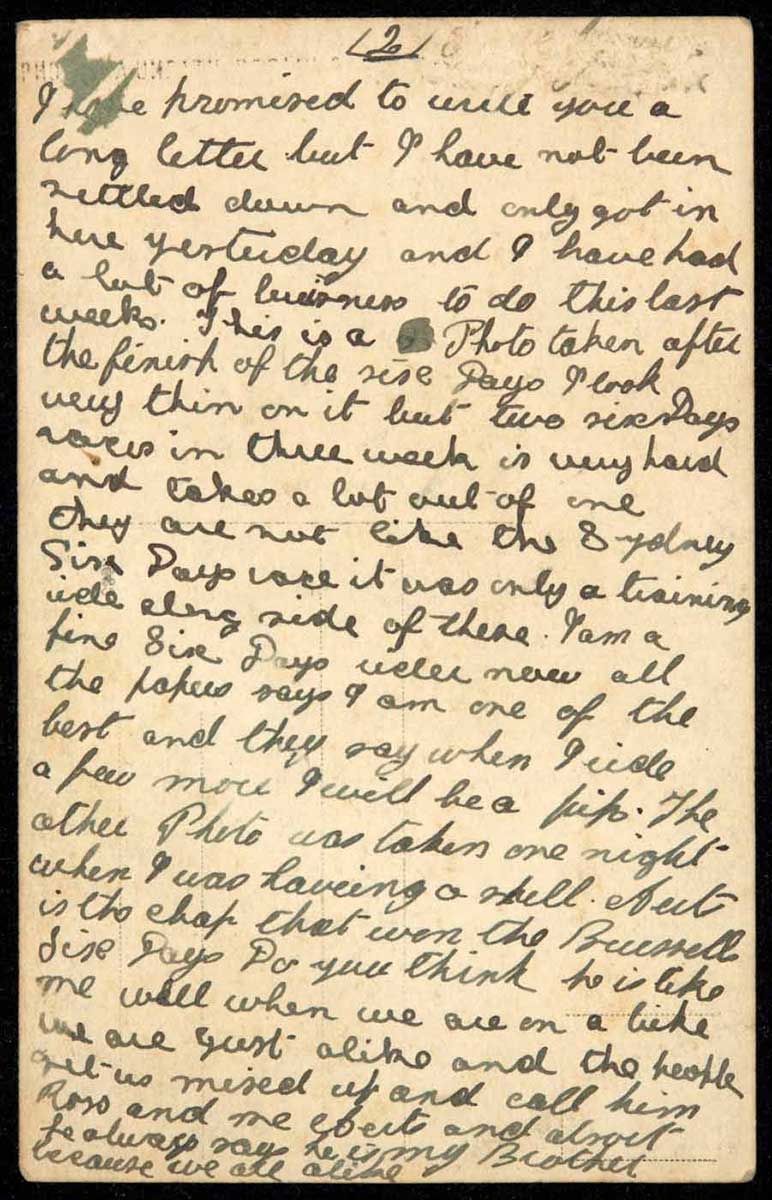 (2)
I have promised to write you a
long letter but I have not been
settled down and only got in
here yesterday and I have had
a lot of buisness to do this last
weeks. This is a Photo taken after
the finish of the sise Days I look
very thin on it but two six Days
races in three week is very hard
and takes a lot out of one
they are not like the Sydney
Six Days race it was only a training
ride along side of these. I am a
fine Six Days rider now all
the papers says I am one of the
best and they say when I ride
a few more I will be a pip. The
other Photo was taken one night
when I was haveing a spell.
is the chap that won the Brussells
Sise Days Do you think he is like
me well when we are on a bike
we are just alike and the people
get us mixed up and call him
Ross and me and
he always say he is my Brother
because we are alike